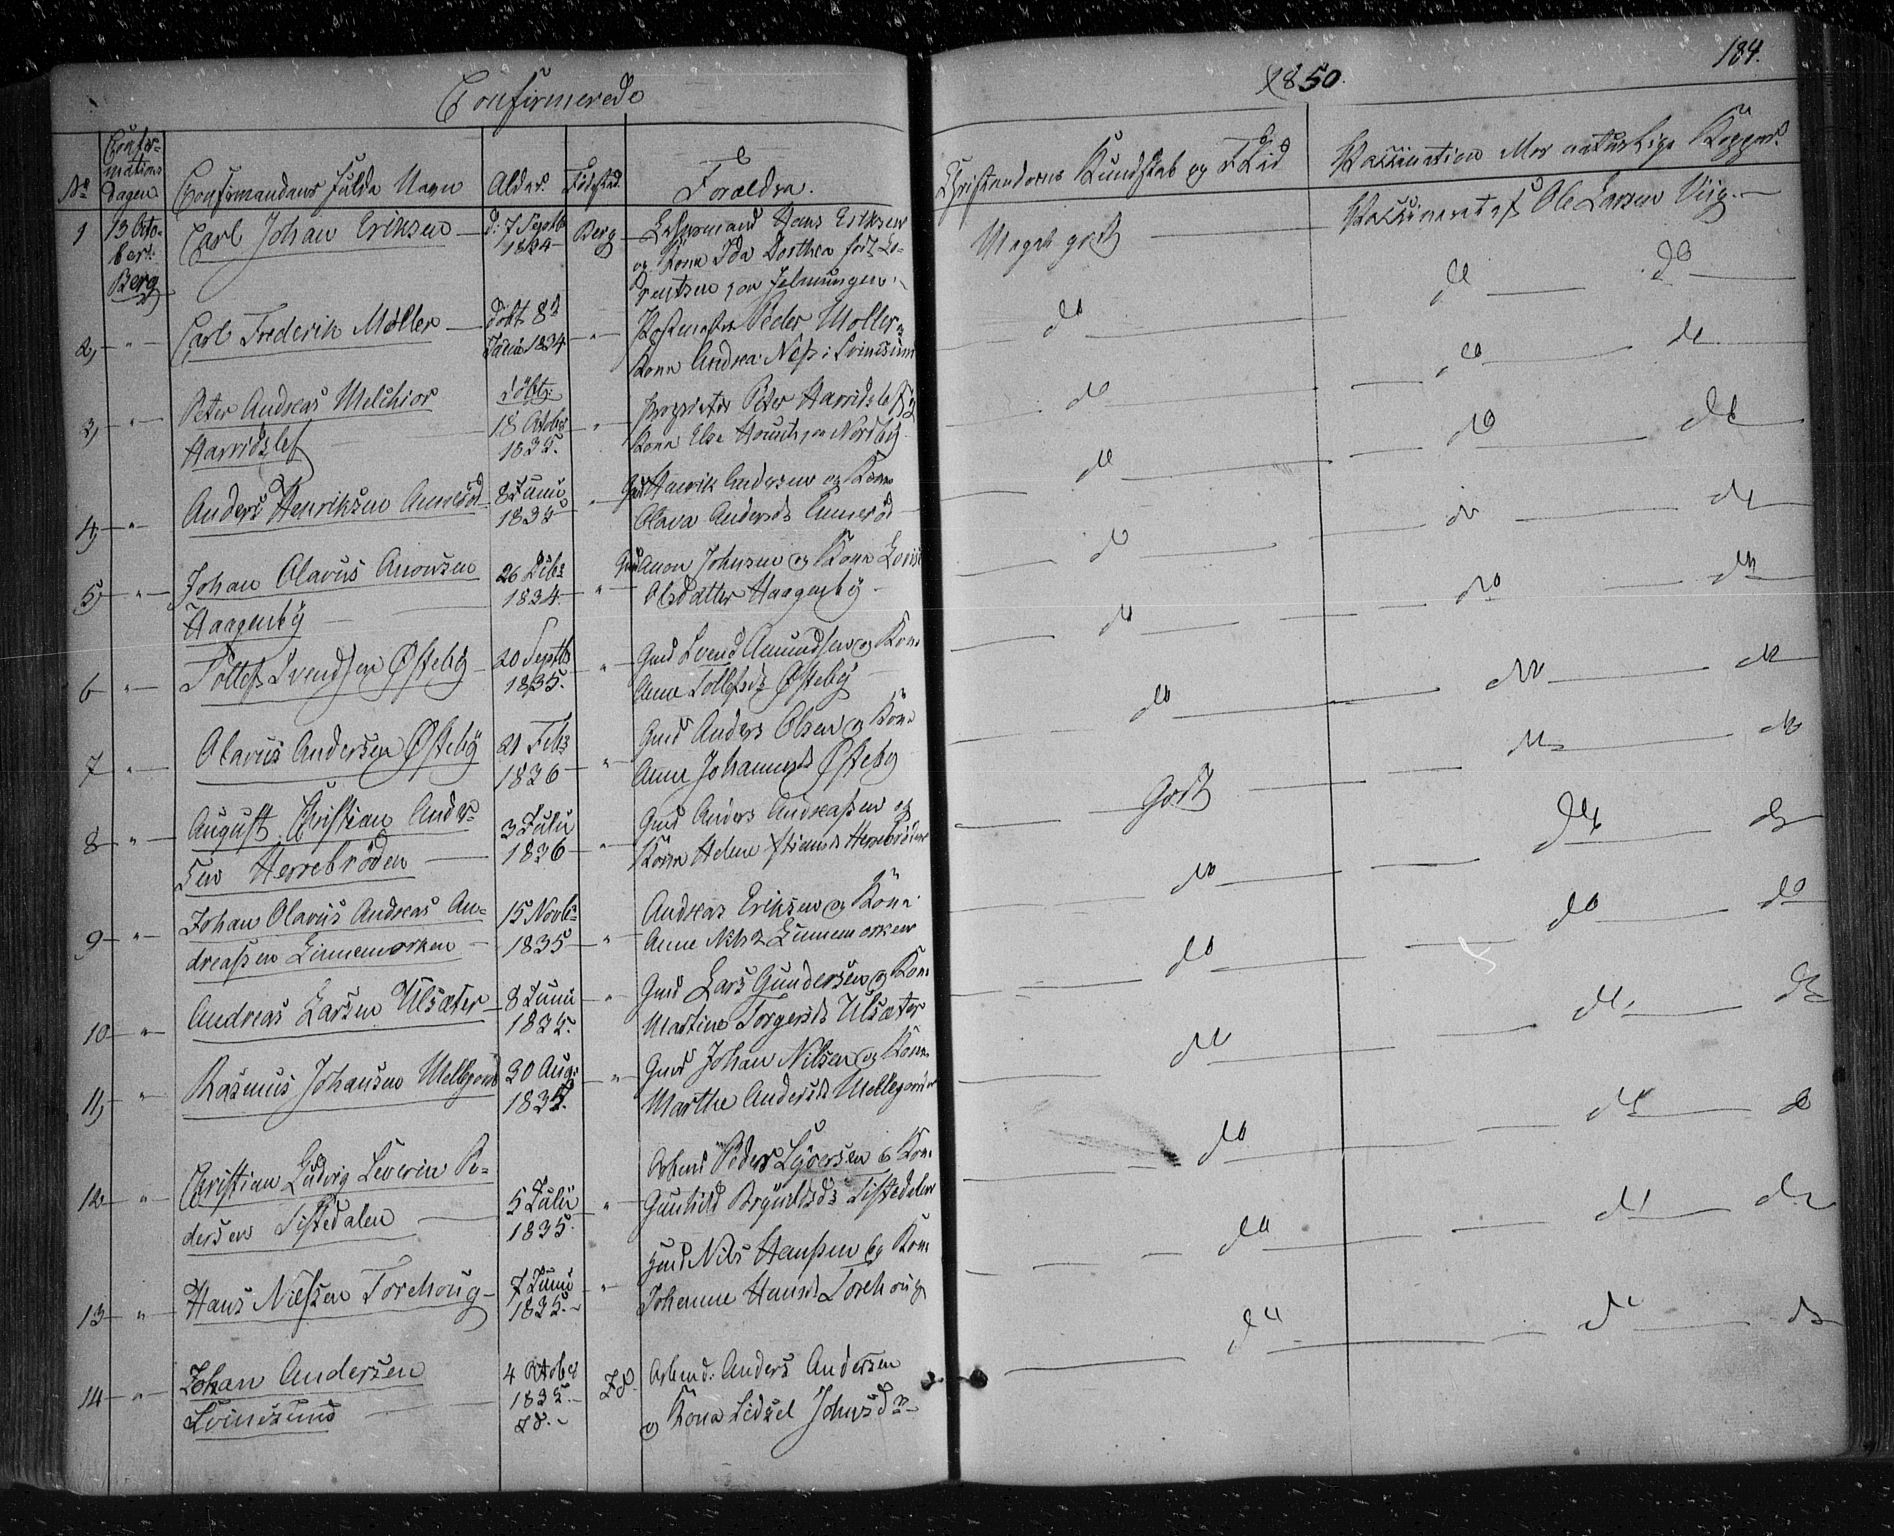 Confirmerede
1850.
184.
No
Confir-
mations
Dagen
Confirmandens fulde Navn
Alder.
Födested.
Forældre.
Christendoms Kundskab og Flid
Vaccination eller naturlige Kopper.
1
13 Octo-
ber.
Berg
Carl Johan Eriksen
d: 7 Septb
1834
Berg
Hans Eriksen
og Kone Ida Dorthea född Lo-
rentsen paa
Meget godt
Vaccineret af Ole Larsen Viig
2,
"
Carl Frederik Möller
döbt 8d
1834
"
Postmester Peder Möller og
Kone Andrea Ness i Svinesund
do
do
do
3,
"
Peter Andreas Melchior
Harridslef
döbt
18 Octobr
1835.
"
Proprietær Peter Harridslef og
Kone Else Houch paa Nordby
do
do
do
4,
"
Anders Henriksen Anneröd
8 Juni
1835
"
Gmd Henrik Andersen og Kone
Olava Andersd. Anneröd
do
do
do
5,
"
Johan Olavus Anonsen
Haagenby
26 Debr
1834.
"
Gmd Anon Johnsen og Kone
Olsdatter Haagenby
do
do
do
6
"
Tollef Svendsen Østeby
20 Septb
1835.
"
Gmd Svend Amundsen og Kone
Anne Tollefsd. Østeby
do
do
do
7
"
Olavus Andersen Østeby
21 Febr
1836
"
Gmd Anders Olsen og Kone
Anne Johannesd. Østeby
do
do
do
8
"
August Christian Ander-
sen Herrebröden
3 Juli
1836
"
Gmd Anders Andreassen og
Kone Helene Herrebröden
Godt
do
do
9
"
Johan Olavus Andreas An-
dreassen Linnemorken
15 Novbr
1835
"
Andreas Eriksen og Kone
Anne Nilsd. Linnemorken
do
do
do
10
"
Andreas Larsen Ulsæter
8 Juni
1835.
"
Gmd Lars Gundersen og Kone
Martine Torgersd. Ulsæter
do
do
do
11,
"
Rasmus Johansen
30 Aug
1835.
"
Gmd Johan Nilsen og Kone
Marthe Andersd.
do
do
do
12
"
Christian Ludvig Severin Pe-
dersen Tistedalen
5 Juli
1835.
"
Arbmd Peder Syversen & Kone
Gunhild Tistedalen
do
do
do
13
"
Hans Nielsen Torehoug
7 Juni
1835.
"
Gmd Nils Hanssen og Kone
Johanne Hansd. Torehoug
do
do
do
14
"
Johan Andersen
Svinesund
4 Octobr
1835.
Id.
Id.
Arbmd. Anders Andersen
og Kone Sidsel Johnsdr
do
do
do